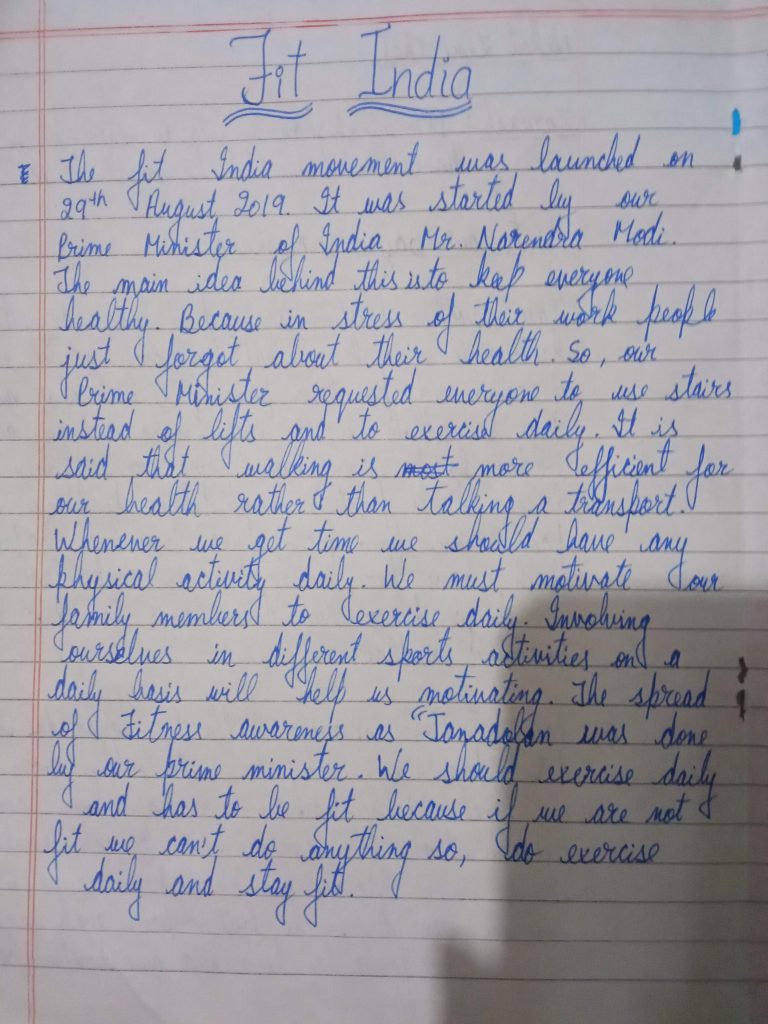 Fit India
The fit India movement was launched on
29th August 2019. It was started by our
Prime Minister of India Mr. Narendra Modi.
The main idea behind this is to keep everyone
healthy. Because in stress of their work people
just forgot about their health. So, our
Prime Minister requested everyone to use stairs
instead of lifts and to exercise daily. It is
said that walking is most more efficient for
our health rather than talking a transport.
Whenever we get time we should have any
physical activity daily. We must motivate our
family members to exercise daily. Involving
ourselves in different sports activities on a
daily basis will help us motivating. The spread
of Fitness awareness as "Janadolan was done
by our prime minister. We should exercise daily
and has to be fit because if we are not
fit we can't do anything so, do exercise
daily and stay fit.